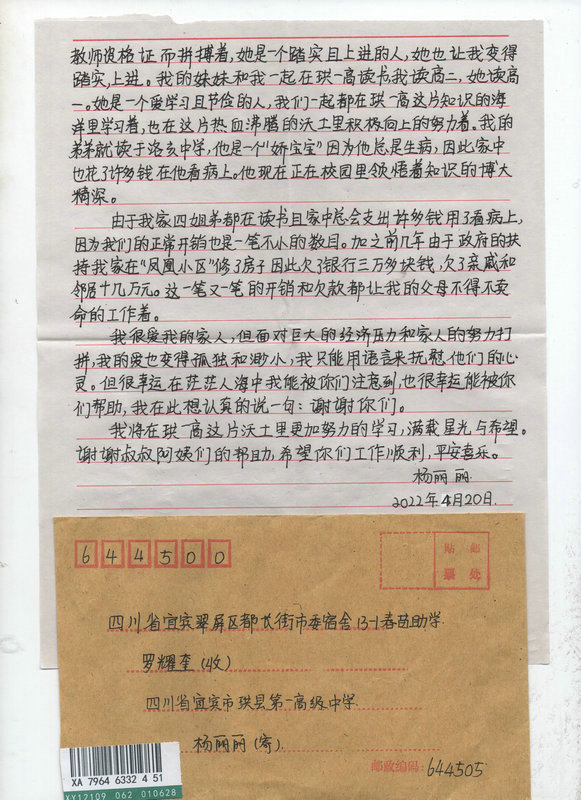 教师资格证而拼搏着，她是一个踏实且上进的人，她也让我变得
踏实，上进。我的妹妹和我一起在珙一高读书，我读高二，她读高
一。她是一个爱学习且节俭的人，我们一起都在珙一高这片知识的海
洋里学习着，也在这片热血沸腾的沃土里积极向上的努力着。我的
弟弟就读于洛亥中学，他是一个“娇宝宝”因为他总是生病，因此家中
也花了许多钱在他看病上。他现在正在校园里领悟着知识的博大
精深。
由于我家四姐弟都在读书且家中总会支出许多钱用了看病上，
因为我们的正常开销也是一笔不小的数目。加之前几年由于政府的扶
持我家在“凤凰小区”修了房子因此欠了银行三万多块钱，欠了亲戚和
邻居十几万元。这一笔又一笔的开销和欠款都让我的父母不得不卖
命的工作着。
我很爱我的家人，但面对巨大的经济压力和家人的努力打
拼，我的爱也变得孤独和渺小，我只能用语言来抚慰他们的心
灵。但很幸运在茫茫人海中我能被你们注意到，也很幸运能被你
们帮助，我在此想认真的说一句：谢谢你们。
我将在珙一高这片沃土里更加努力的学习，满载星光与希望。
谢谢叔叔阿姨们的帮助，希望你们工作顺利，平安喜乐。
杨丽丽
2022年4月20日.
644500
贴 邮
票 处
四川省宜宾翠屏区都长街市委宿舍13-1春苗助学
罗耀奎(收)
四川省宜宾市珙县第一高级中学
杨丽丽(寄)
邮政编码：644505
XA 7964 6332 4 51
XY12109 062 010628